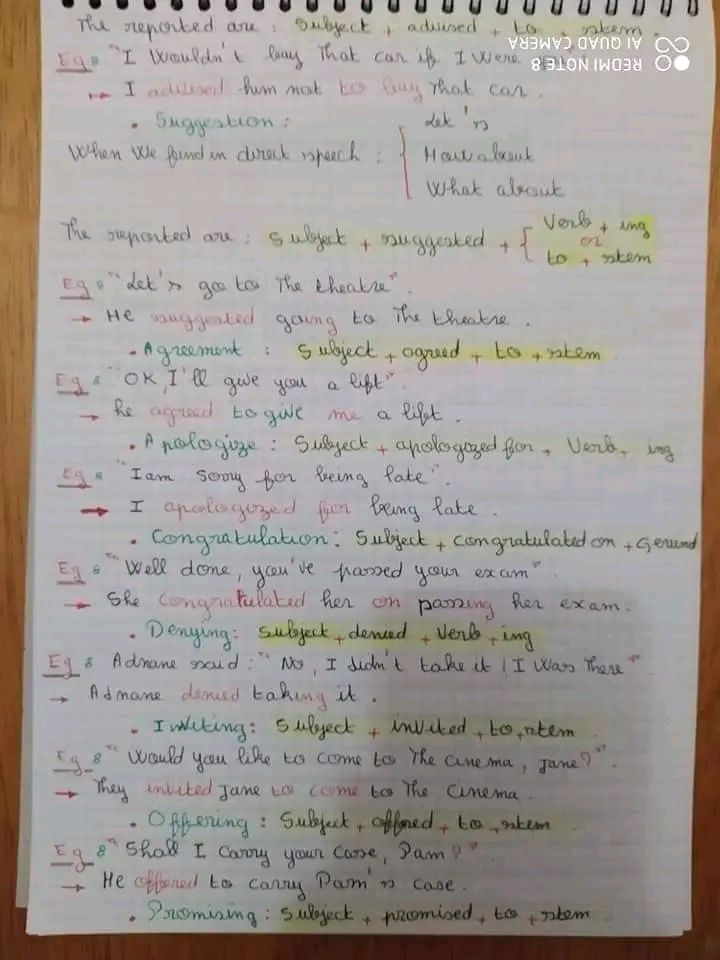 The reported are : Subject + advised + to + stem.
REDMI NOTE 8
AI QUAD CAMERA
Eg : "I Wouldn't buy That car if I were
→ I advised him not to buy That car.
• Suggestion :
When We found in direct speech : { Let's
How about
What about
The reported are : Subject + suggested + { Verb + ing
or
to + stem
Eg : "Let's go to The theatre".
→ He suggested going to The theatre.
• Agreement : Subject + agreed + to + stem
Eg : "OK, I'll give you a lift".
→ he agreed to give me a lift.
• Apologize : Subject + apologized for + Verb + ing
Eg : "I am Sorry for being late".
→ I apologized for being late.
• Congratulation : Subject + congratulated on + Gerund
Eg : "Well done, you've passed your exam".
→ She congratulated her on passing her exam.
• Denying : Subject + denied + Verb + ing
Eg : Adnane said : "No, I didn't take it / I Was There"
→ Adnane denied taking it.
• Inviting : Subject + invited + to + stem
Eg : "Would you like to come to The cinema, Jane?".
→ They invited Jane to come to The cinema.
• Offering : Subject + offered + to + stem
Eg : "Shall I carry your case, Pam?"
→ He offered to carry Pam's case.
• Promising : Subject + promised + to + stem